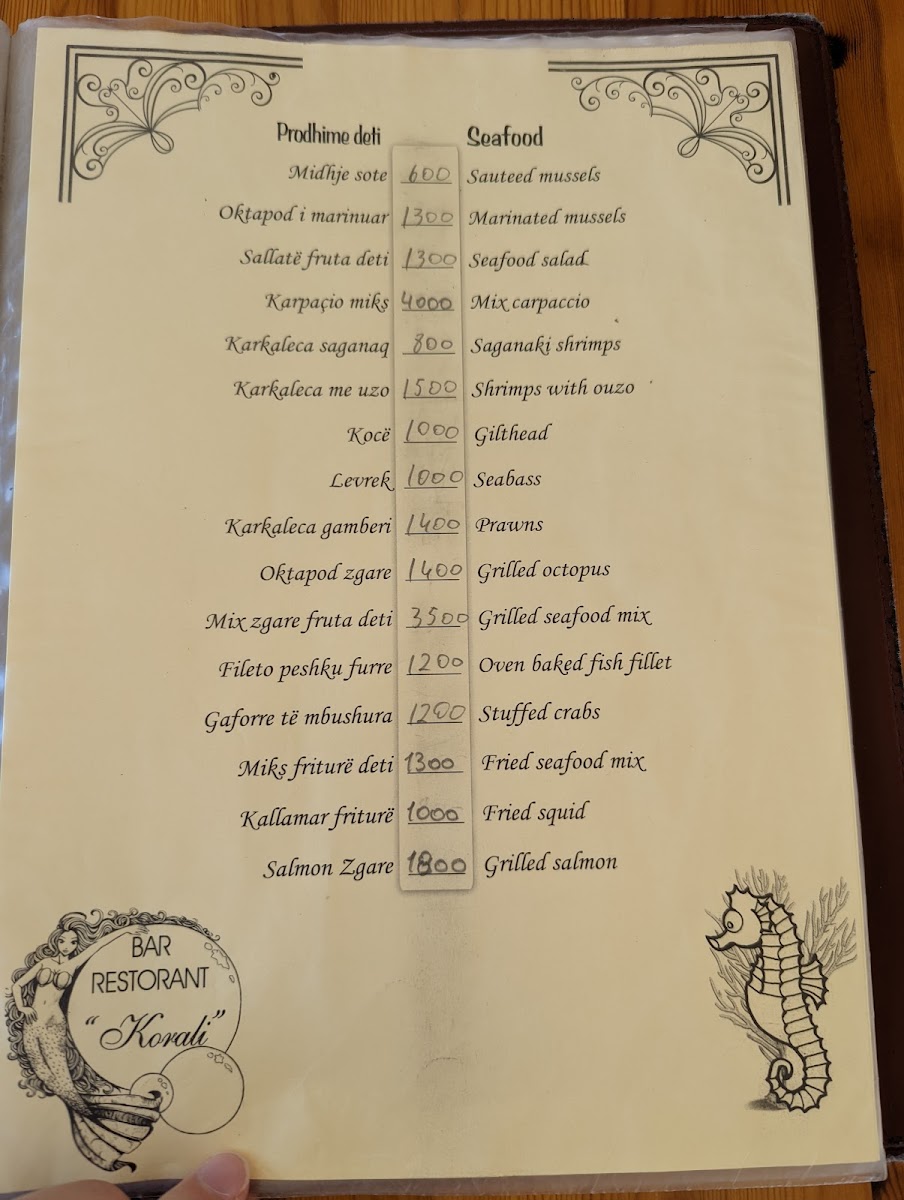 Prodhime deti Seafood
Midhje sote 600 Sauteed mussels
Oktapod i marinuar 1300 Marinated mussels
Sallatë fruta deti 1300 Seafood salad
Karpaçio miks 4000 Mix carpaccio
Karkaleca saganaq 800 Saganaki shrimps
Karkaleca me uzo 1500 Shrimps with ouzo
Kocë 1000 Gilthead
Levrek 1000 Seabass
Karkaleca gamberi 1400 Prawns
Oktapod zgare 1400 Grilled octopus
Mix zgare fruta deti 3500 Grilled seafood mix
Fileto peshku furre 1200 Oven baked fish fillet
Gaforre të mbushura 1200 Stuffed crabs
Miks friturë deti 1300 Fried seafood mix
Kallamar friturë 1000 Fried squid
Salmon Zgare 1800 Grilled salmon
BAR
RESTORANT
"Korali"